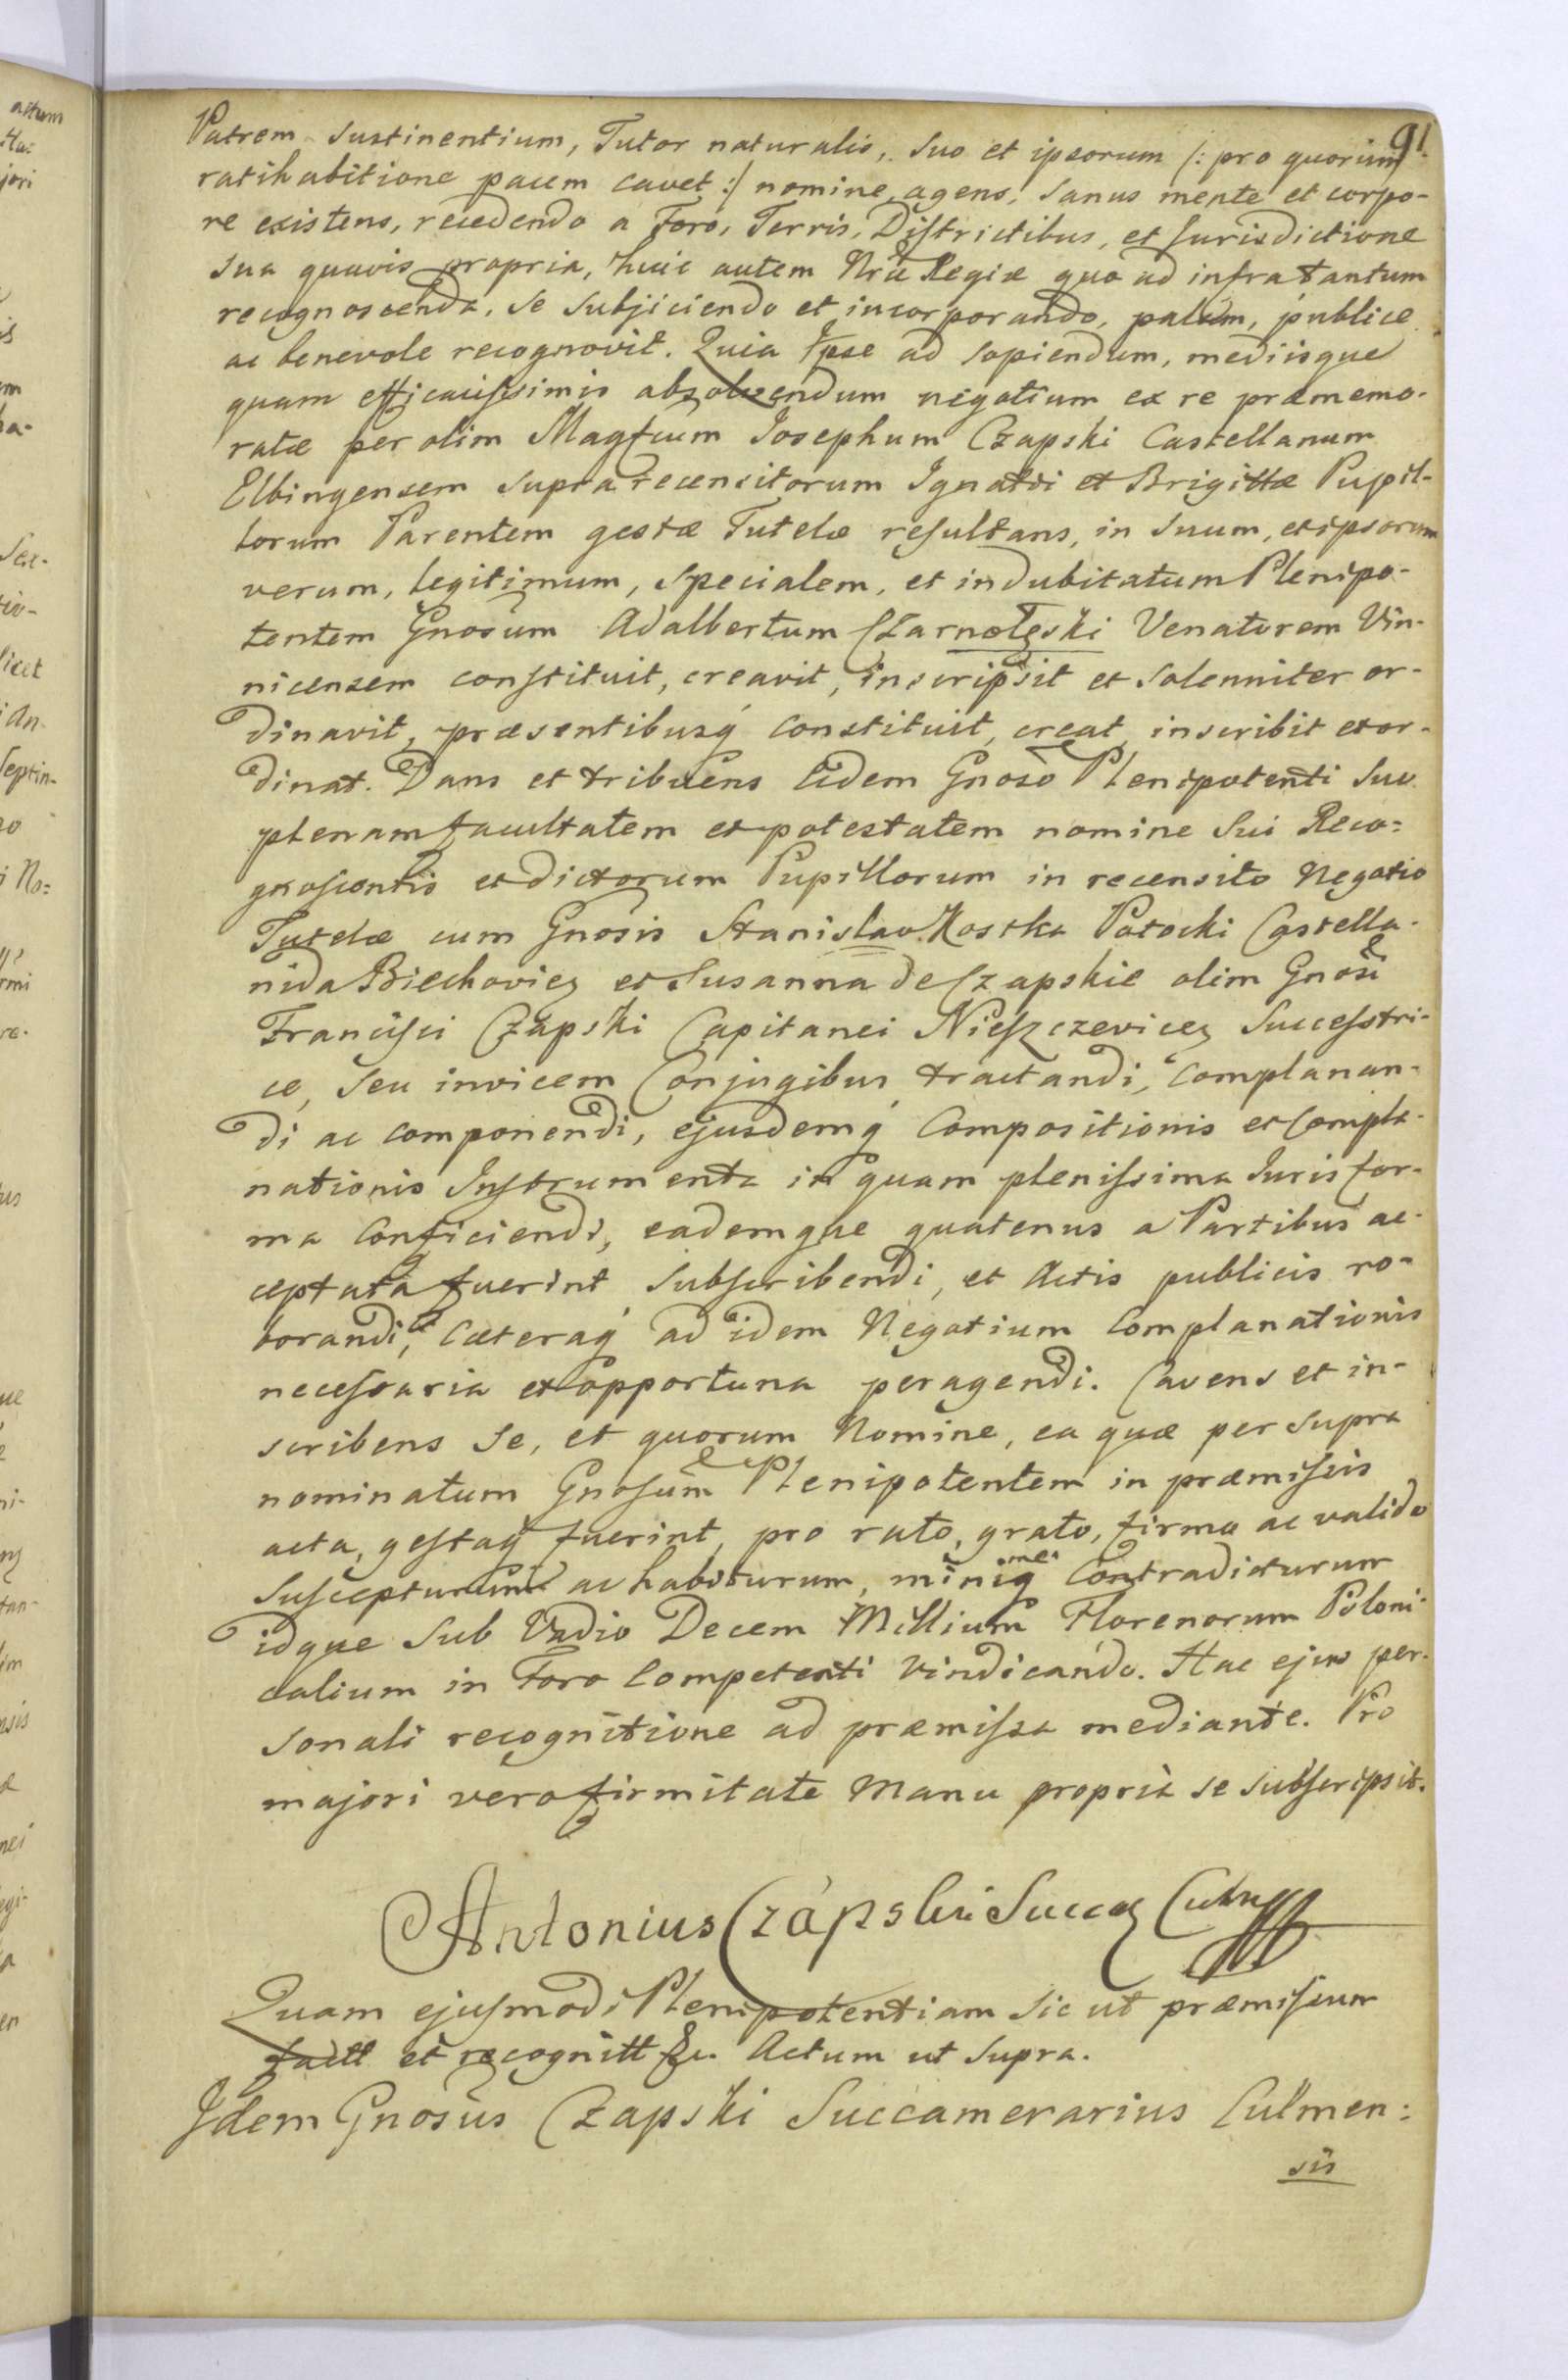 91.
Patrem sustinentium, Tutor naturalis, suo et ipsorum /: pro quorum
ratihabitione pacem cavet :/ nomine agens, sanus mente et corpo-
re existens, recedendo a Foro, Terris, Districtibus, et Jurisdictione
sua quavis propria, huic autem Nrae Regiae quo ad infra tantum
recognoscenda, se subjiciendo et incorporando, palam, publice
ac benevole recognovit. Quia Ipse ad sopiendum, mediisque
quam efficacissimis absolvendum negotium ex re praememo-
ratae per olim Magfcum Josephum Czapski Castellanum
Elbingensem supra recensitorum Ignatii et Brigittae Pupil-
lorum Parentem gestae Tutelae resultans, in suum, et ipsorum
verum, legitimum, specialem, et indubitatum Plenipo-
tentem Gnosum Adalbertum Czarnołęski Venatorem Vin-
nicensem constituit, creavit, inscripsit et solenniter or-
dinavit, praesentibusq constituit, creat, inscribit et or-
dinat. Dans et tribuens eidem Gnoso Plenipotenti suo
plenam facultatem et potestatem nomine sui Reco=
gnoscentis et dictorum Pupillorum in recensito Negotio
Tutelae cum Gnosis Stanislao Kostka Potocki Castella-
nida Biechoviez et Susanna de Czapskie olim Gnosi
Francisci Czapski Capitanei Nieszczevicez Successtri-
ce, seu invicem Conjugibus tractandi, complanan-
di ac componendi, ejusdemq Compositionis et Compla-
nationis Instrumenta in quam plenissima Juris for-
ma conficiendi, eademque quatenus a Partibus ac-
ceptata fuerint subscribendi, et Actis publicis ro-
borandi, caeteraq ad idem Negotium Complanationis
necessaria et opportuna peragendi. Cavens et in-
scribens se, et quorum Nomine, ea quae per supra
nominatum Gnosum Plenipotentem in praemissis
acta, gestaq fuerint, pro rato, grato, firmo ac valido
suscepturum ac habiturum, minimeq Contradicturum
idque sub Vadio Decem Millium Florenorum Poloni-
calium in Foro Competenti vindicando. Hac ejus per-
sonali recognitione ad praemissa mediante. Pro
majori vero firmitate Manu propria se subscripsit.
Antonius Czapski Succaz
Quam ejusmodi Plenipotentiam sic ut praemissum
factt et recognitt &c. Actum ut supra.
Idem Gnosus Czapski Succamerarius Culmen:
sis